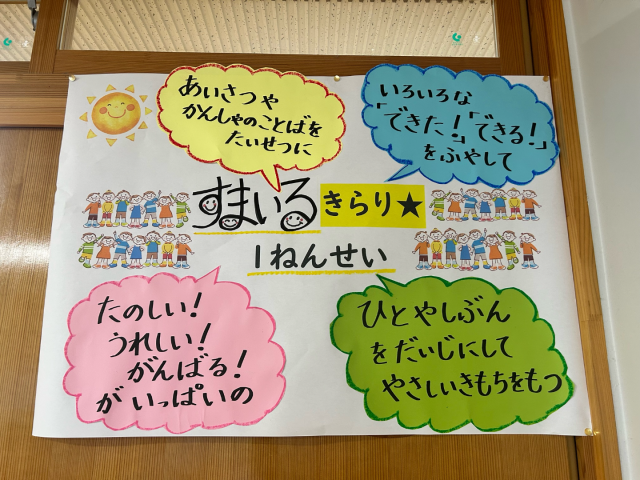 あいさつや
かんしゃのことばを
たいせつに
いろいろな
「できた!」「できる!」
をふやして
すまいる きらり★
1ねんせい
たのしい!
うれしい!
がんばる!
がいっぱいの
ひとやしぶん
をだいじにして
やさしいきもちをもつ